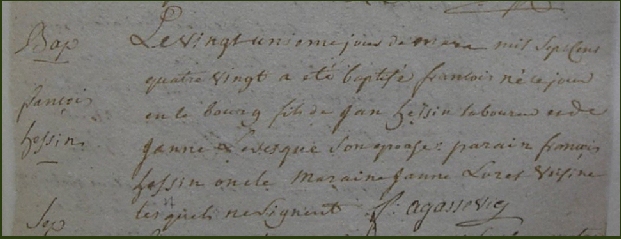 Bap
françois
hessin
Le vingt unieme jour de mars mil sept cens
quatre vingt a eté baptisé francois né ce jour
en le bourg fils de Jan hessin laboureur et de
Janne Levesque son epouse parain françois
hessin oncle maraine Janne Loret voisine
lesquels ne signent
Sep